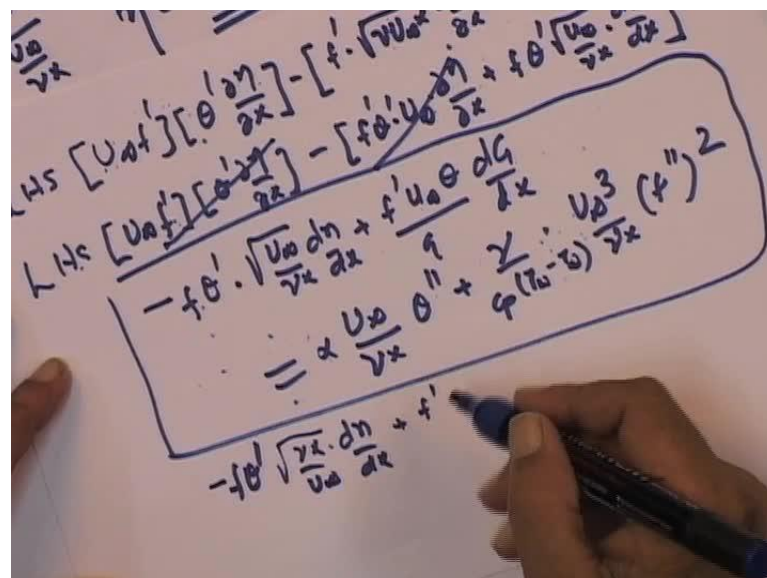 U∞/νx η =
LHS [U∞f'][θ' ∂η/∂x] - [f'·√νU∞x ∂x
LHS [U∞f'][θ' ∂η/∂x] - [f'θ'U∞ ∂η/∂x + fθ' √U∞/νx · dx]
- fθ' · √U∞/νx dη/dx + f'U∞θ/G dG/dx
= α U∞/νx θ'' + ν/Cp(Tw-T∞) · U∞³/νx (f'')²
-fθ' √νx/U∞ · dη/dx + f'